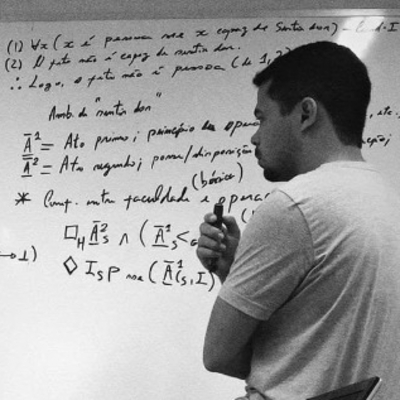 (1) ∀x (x é pessoa sse x capaz de sentir dor) - Cond. I
(2) O feto não é capaz de sentir dor.
∴ Logo, o feto não é pessoa (de 1, 2)
Amb. de "sentir dor"
Ā¹ = Ato primeiro; princípio de opera , etc.
Ā² = Ato segundo; posse/disposição
(básica)
* Comp. entre faculdade e opera
□H Ā²s ∧ (Ā¹s <
→ 1)
◇ Is P sse (Ā¹(s, I)